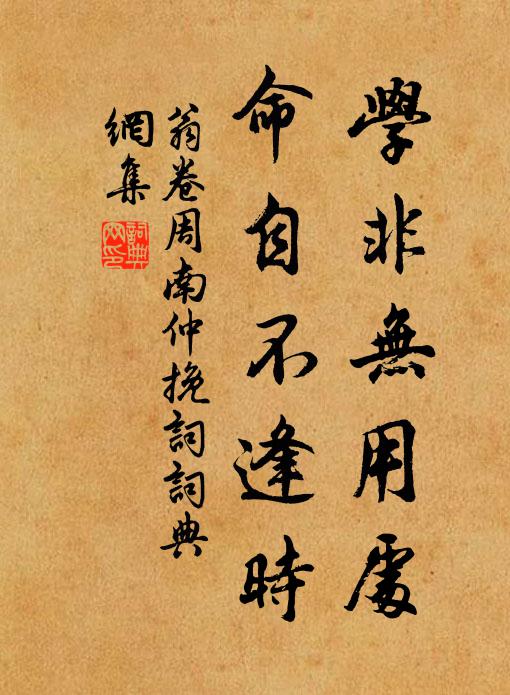 學非無用處
命自不逢時
翁卷周南仲挽詞詞典
網集
詞典
网印